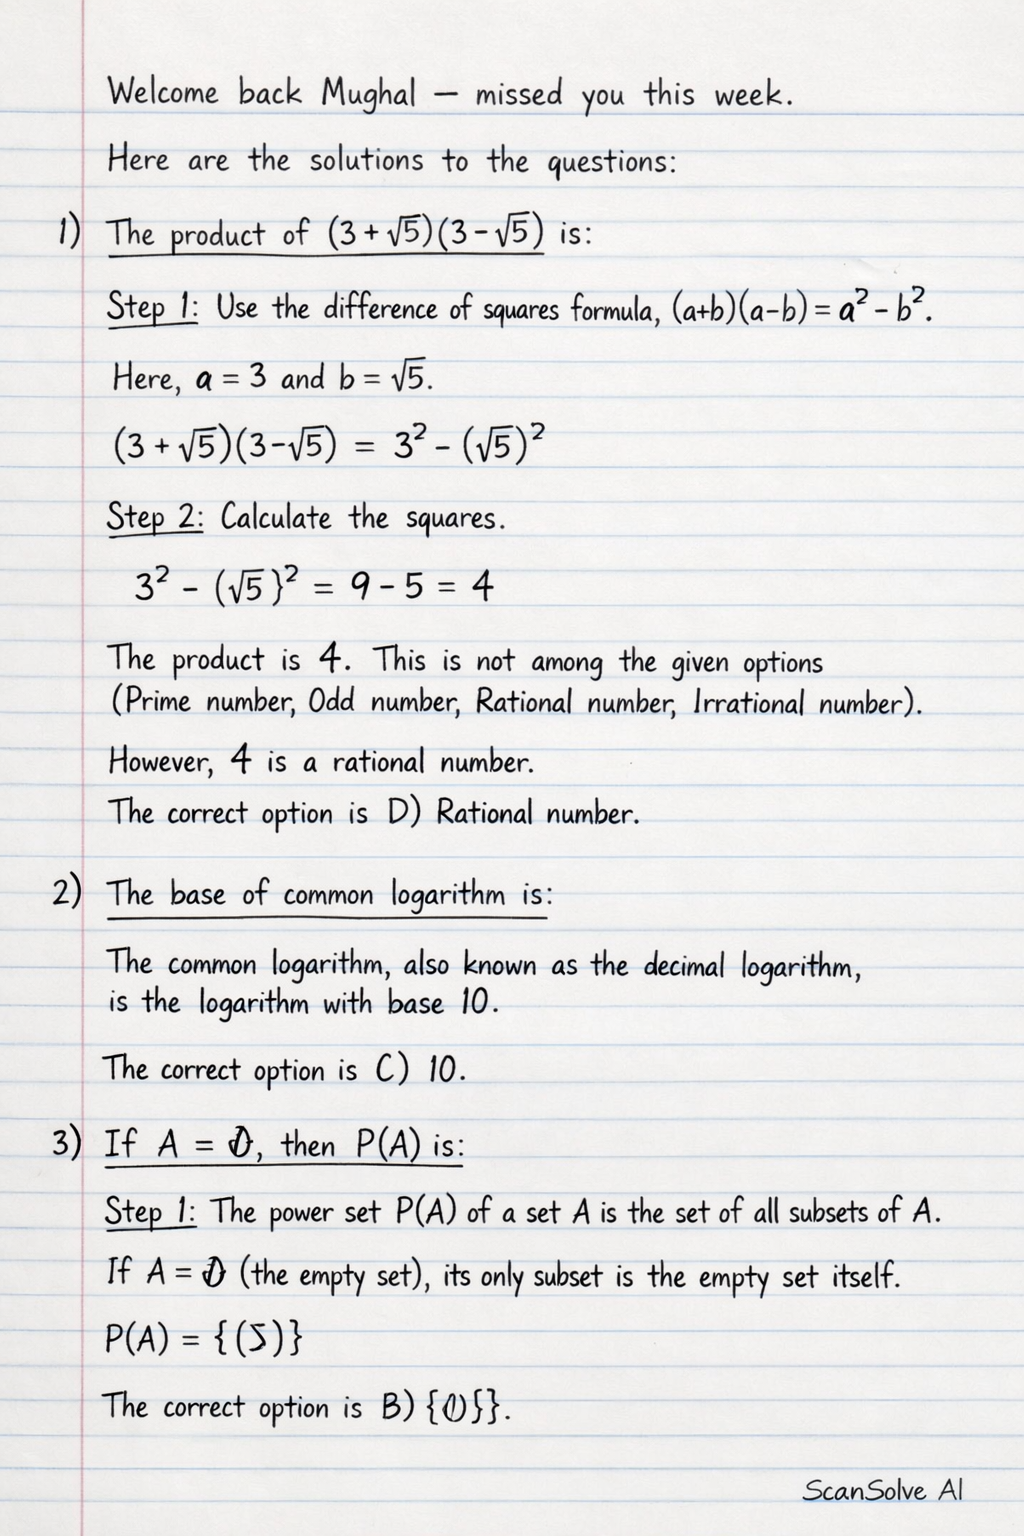 Welcome back Mughal — missed you this week.
Here are the solutions to the questions:
1) The product of (3 + √5)(3 - √5) is:
Step 1: Use the difference of squares formula, (a+b)(a-b) = a² - b².
Here, a = 3 and b = √5.
(3 + √5)(3-√5) = 3² - (√5)²
Step 2: Calculate the squares.
3² - (√5}² = 9 - 5 = 4
The product is 4. This is not among the given options
(Prime number, Odd number, Rational number, Irrational number).
However, 4 is a rational number.
The correct option is D) Rational number.
2) The base of common logarithm is:
The common logarithm, also known as the decimal logarithm,
is the logarithm with base 10.
The correct option is C) 10.
3) If A = ∅, then P(A) is:
Step 1: The power set P(A) of a set A is the set of all subsets of A.
If A = ∅ (the empty set), its only subset is the empty set itself.
P(A) = {(5)}
The correct option is B) {∅}}.
ScanSolve AI